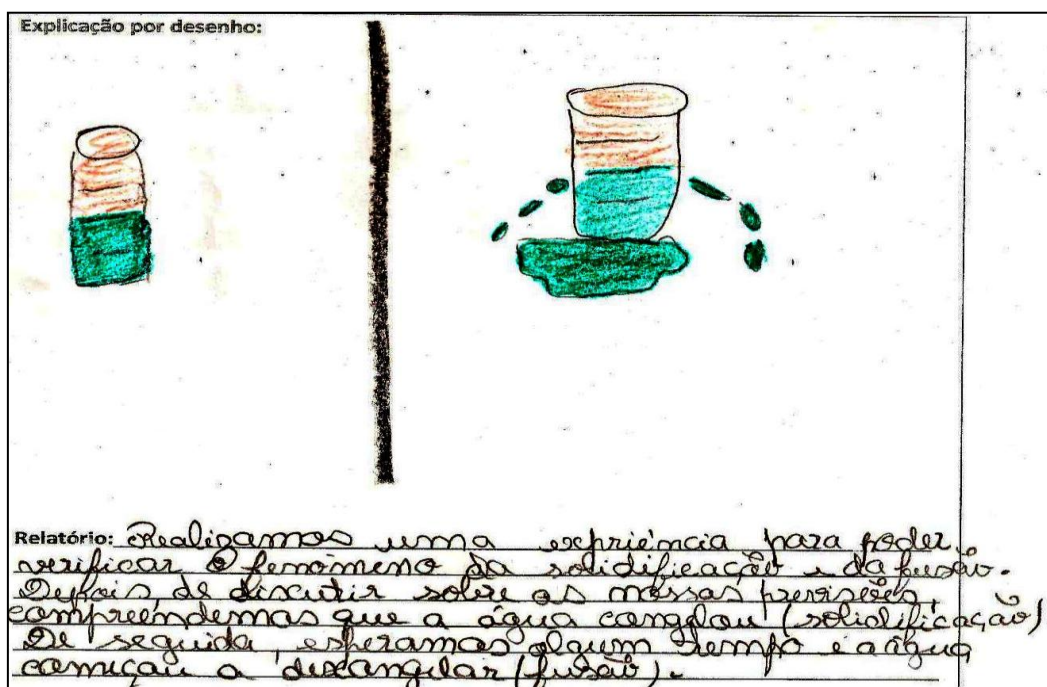 Explicação por desenho:
Relatório: Realizamos uma expriência para poder
verificar O fenómeno da solidificação e da fusão.
Depois de discutir sobre as nossas previsões,
compreendemos que a água congelou (solidificação)
De seguida, esperamos algum tempo e a água
começou a descangelar (fusão).